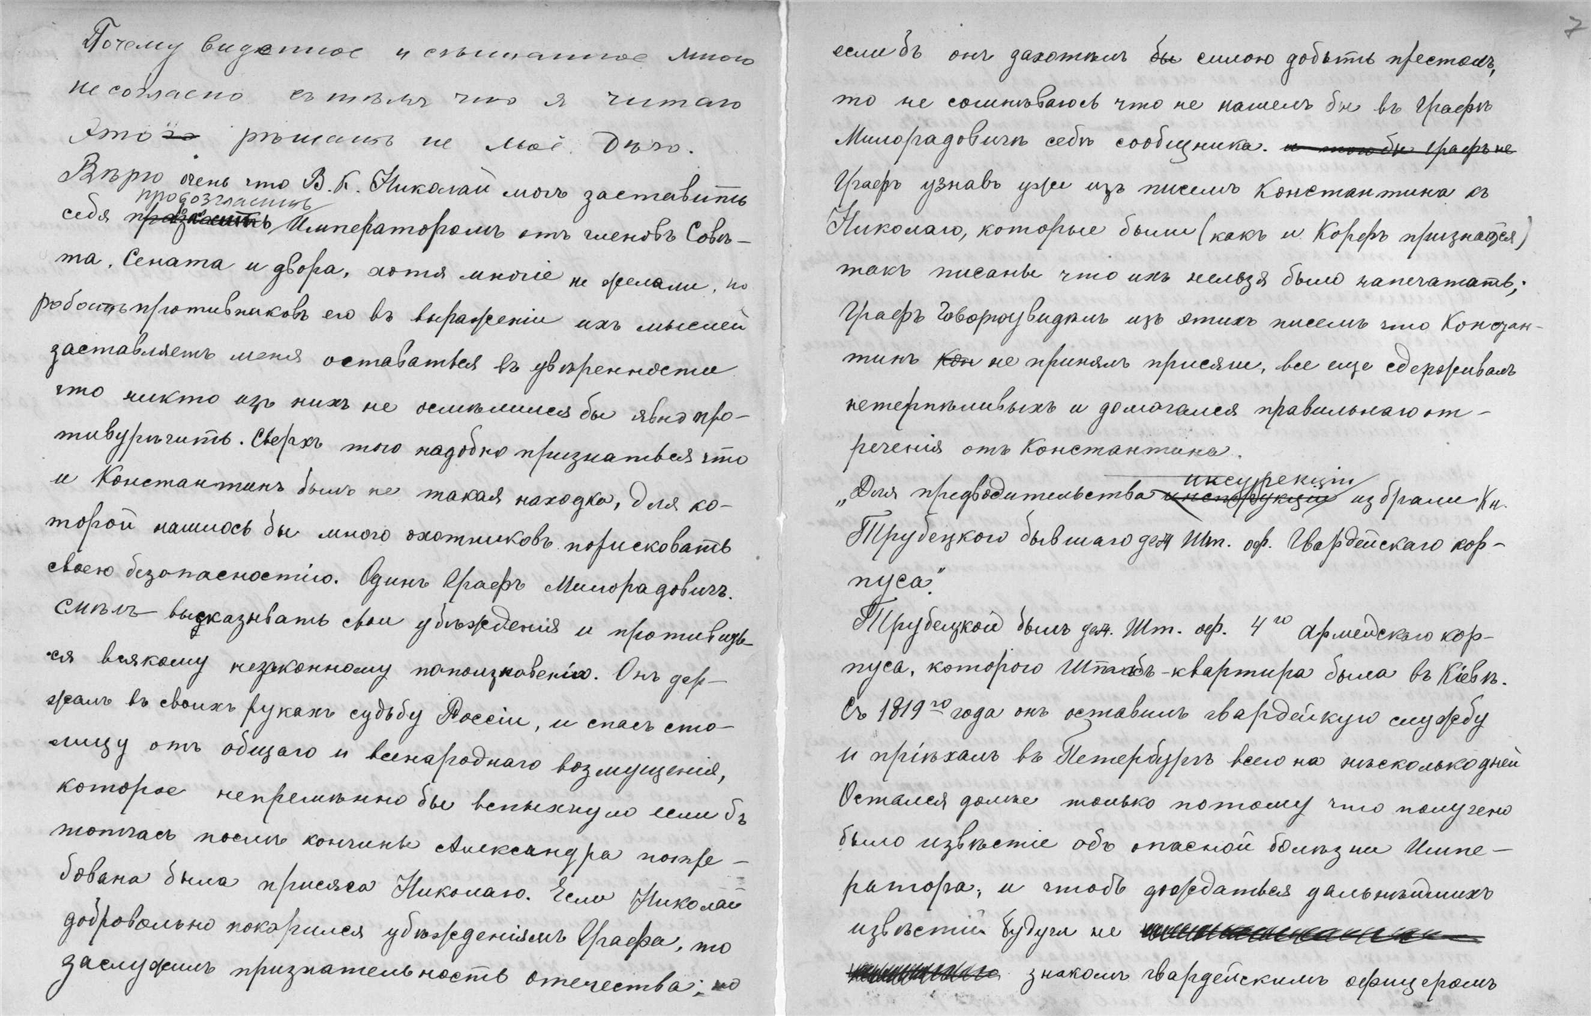 Почему виденное и слышанное мною
несогласно съ тѣмъ что я читаю
Это рѣшать не моё дѣло.
Вѣрю очень что В. К. Николай могъ заставить
провозгласить
себя Императоромъ отъ членовъ Совѣ-
та, Сената и двора, хотя многіе не желали, но
робость противниковъ его въ выраженіи ихъ мыслей
заставляетъ меня оставаться въ увѣренности
что никто изъ нихъ не осмѣлился бы явно про-
тивурѣчить. Сверхъ того надобно признаться что
и Константинъ былъ не такая находка, для ко-
торой нашлось бы много охотниковъ порисковать
своею безопасностію. Одинъ Графъ Милорадовичъ.
смѣлъ высказывать свои убѣжденія и противиць-
ся всякому незаконному поползновенію. Онъ дер-
жалъ въ своихъ рукахъ судьбу Россіи, и спасъ сто-
лицу отъ общаго и всенароднаго возмущенія,
которое непремѣнно бы вспыхнуло если бъ
тотчасъ послѣ кончины Александра потре-
бована была присяга Николаю. Если Николай
добровольно покорился убѣжденіямъ Графа, то
заслужилъ признательность отечества; но
7
если бъ онъ захотѣлъ бы силою добыть престолъ,
то не сомнѣваюсь что не нашелъ бы въ Графѣ
Милорадовичѣ себѣ сообщника. и тогда бы Графъ не
Графъ узнавъ уже изъ писемъ Константина къ
Николаю, которые были (какъ и Корфъ признаётся)
такъ писаны что ихъ нельзя было напечатать;
Графъ говорю увидѣлъ изъ этихъ писемъ что Констан-
тинъ Кон не принялъ присяги, все еще сдерживалъ
нетерпѣливыхъ и домогался правильнаго от-
реченія отъ Константина.
инсуррекціи
„Для предводительства инструкціи избрали Кн.
Трубецкого бывшаго деж Шт. оф. Гвардейскаго кор-
пуса".
Трубецкой былъ деж. Шт. оф. 4го Армейскаго кор-
пуса, котораго Штабъ-квартира была въ Кіевѣ.
Съ 1819го года онъ оставилъ гвардейскую службу
и пріѣхалъ въ Петербургъ всего на нѣсколько дней
Остался долѣе только потому что получено
было извѣстіе объ опасной болѣзни Импе-
ратора; и чтобъ дождаться дальнѣйшихъ
извѣстій Будучи не
знакомъ гвардейскимъ офицерамъ